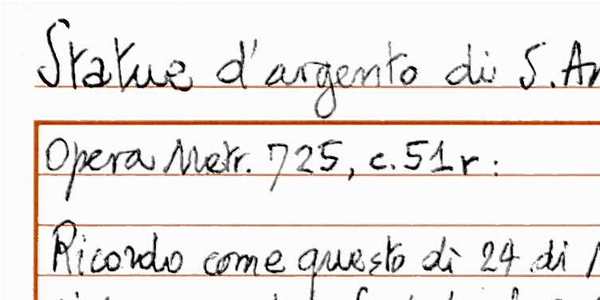 Statue d'argento di S.
Opera Metr. 725, c. 51r:
Ricordo come questo dì 24 di